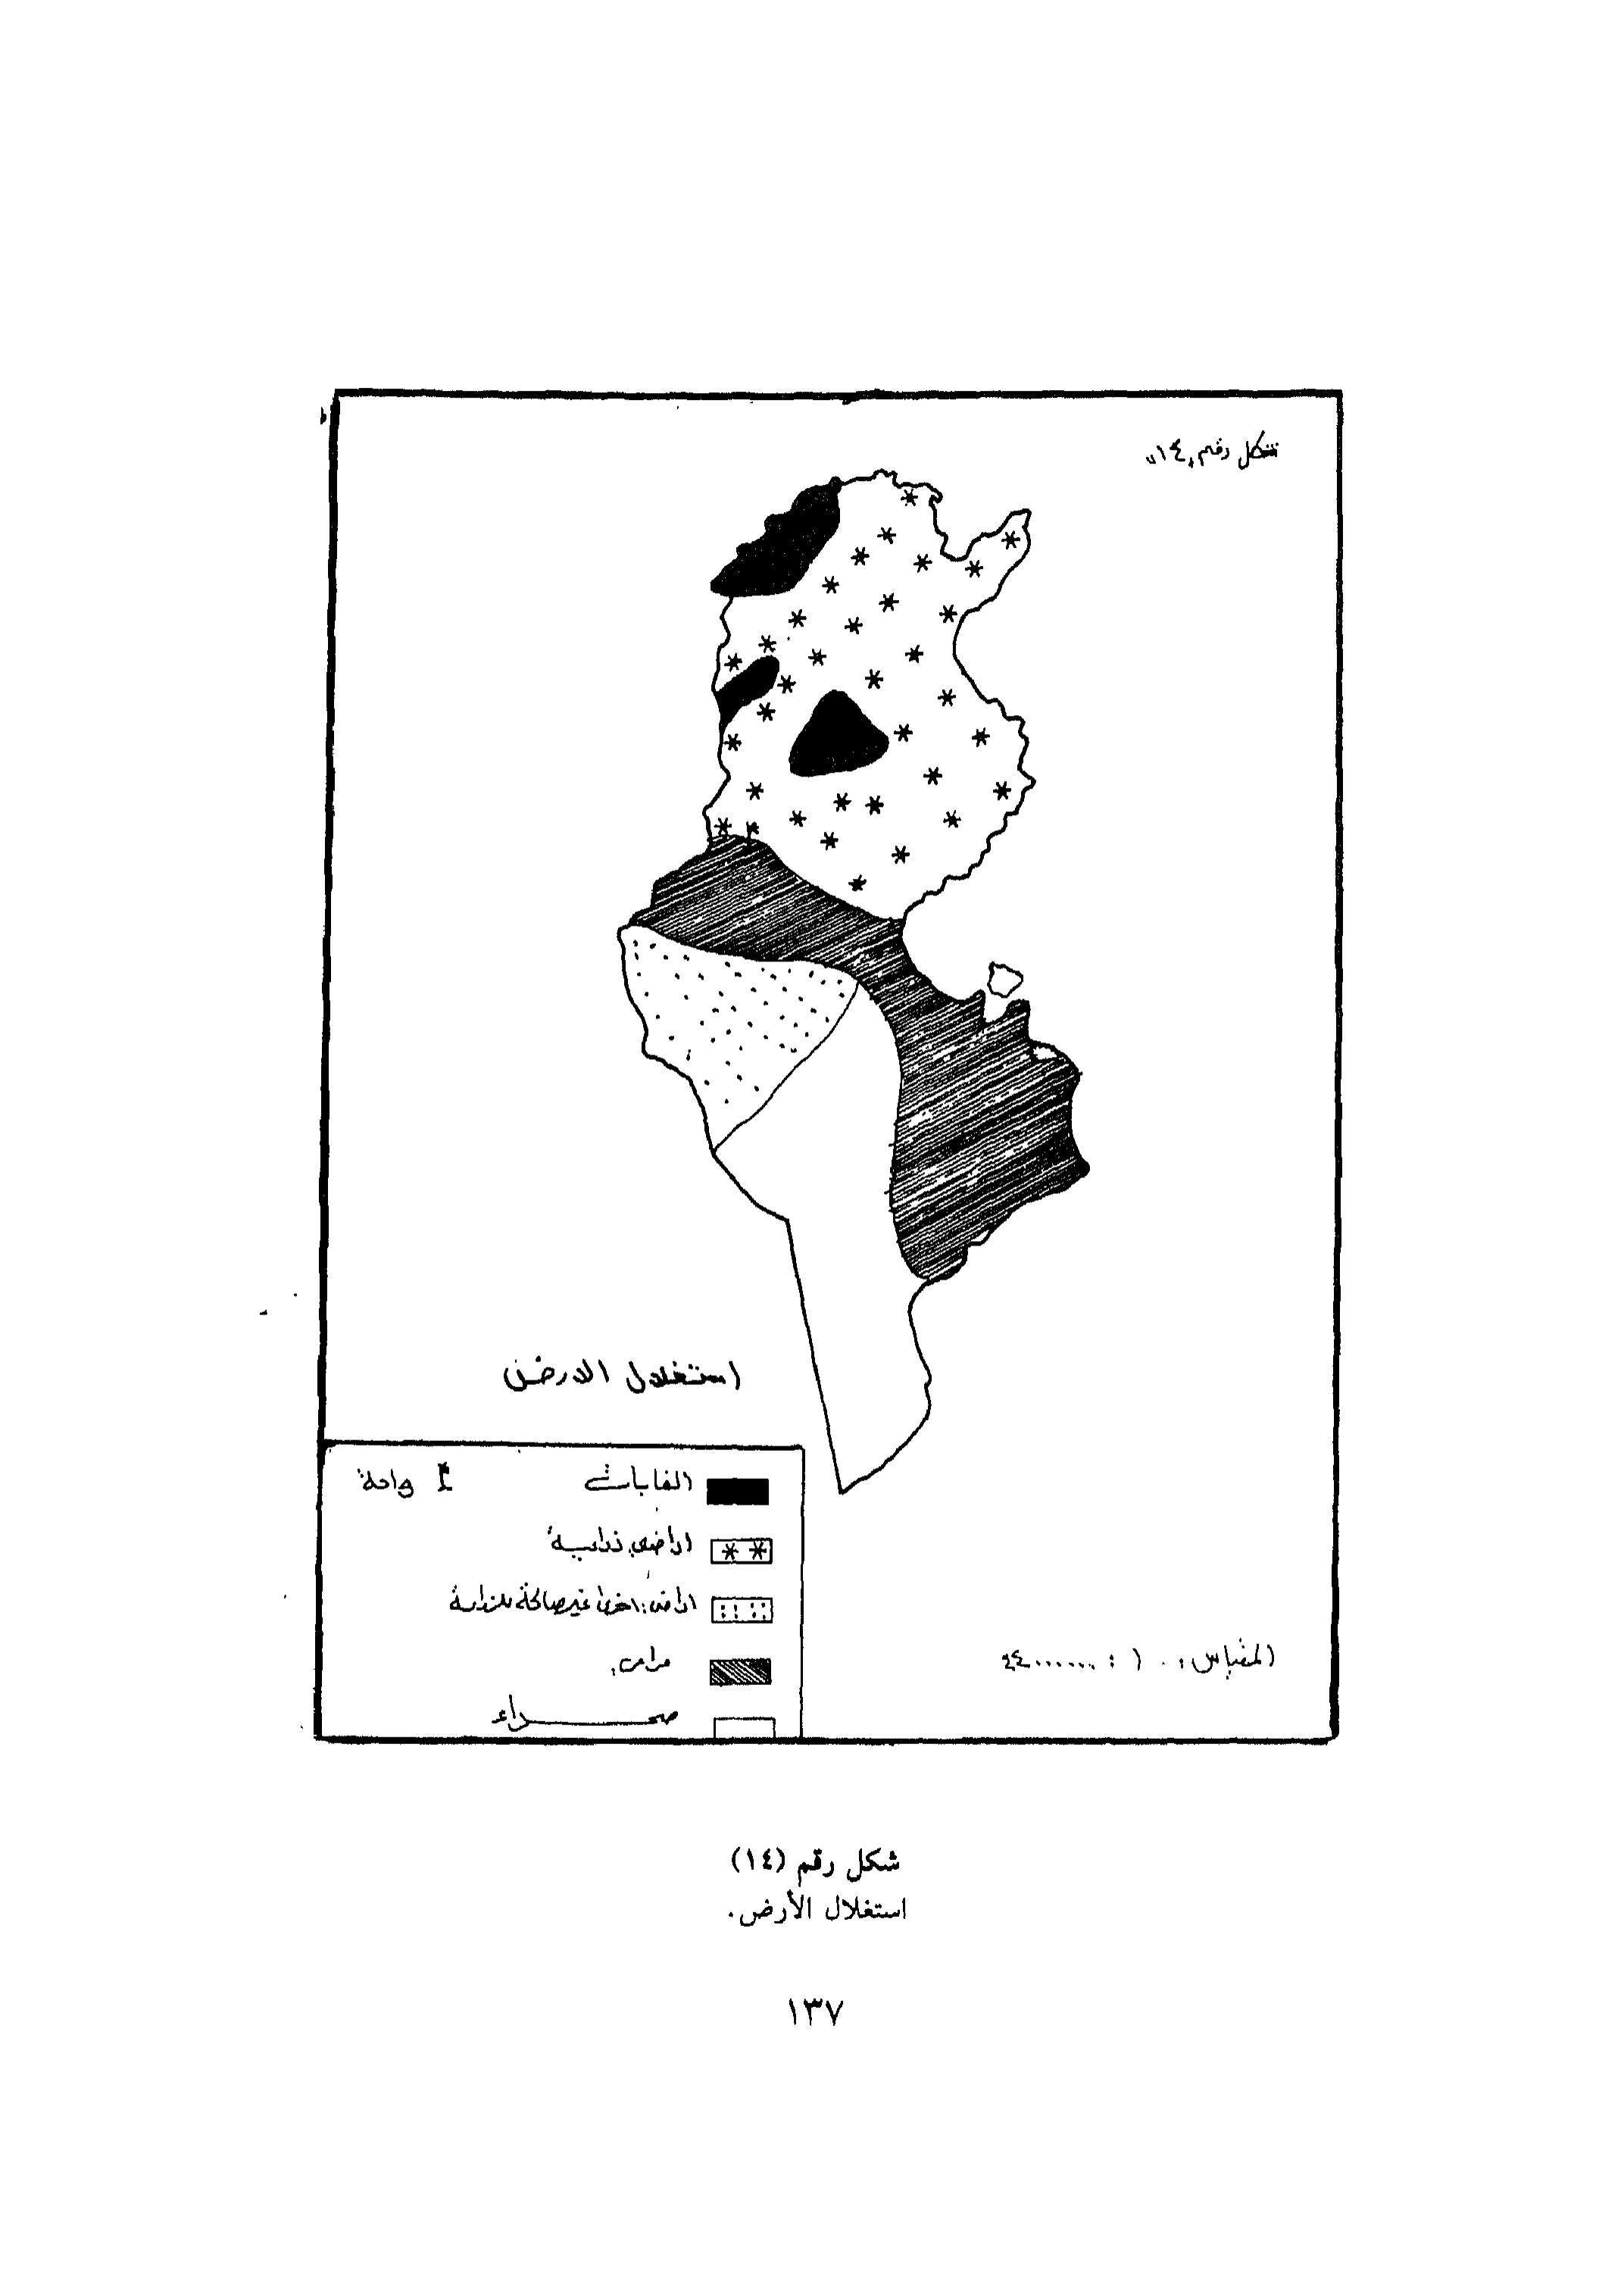 شكل رقم «١٤»
استغلال الارض
الغابات
واحة
اراضي زراعية
اراضي اخرى غير صالحة للزراعة
مراعي
صحراء
المقياس : ١ :
شكل رقم (١٤)
استغلال الأرض.
١٣٧